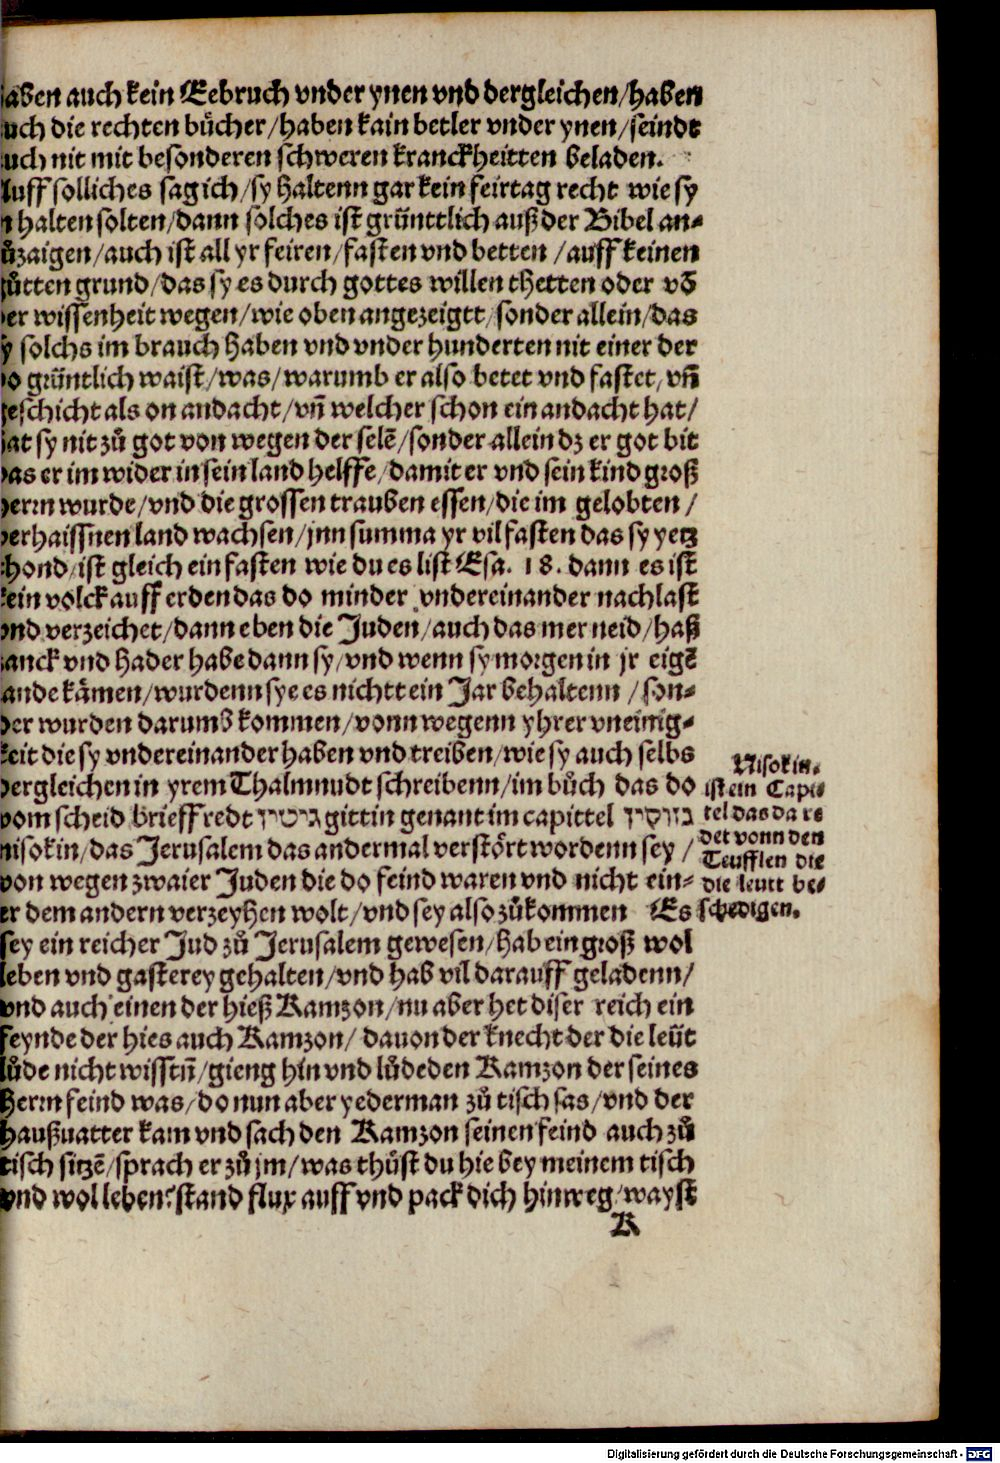 aben auch kein Eebruch vnder ynen vnd dergleichen/haben
uch die rechten bücher/haben kain betler vnder ynen/seindt
uch nit mit besonderen schweren kranckheitten beladen.
Auff solliches sag ich/sy haltenn gar kein feirtag recht wie sy
n halten solten/dann solches ist grünttlich auß der Bibel an⸗
ůzaigen/auch ist all yr feiren/fasten vnd betten/auff keinen
gůtten grund/das sy es durch gottes willen thetten oder vō
der wissenheit wegen/wie oben angezeigtt/sonder allein/das
sy solchs im brauch haben vnd vnder hunderten nit einer der
do grüntlich waist/was/warumb er also betet vnd fastet/vñ
geschicht als on andacht/vñ welcher schon ein andacht hat/
hat sy nit zů got von wegen der selē/sonder allein dz er got bit
das er im wider in sein land helffe/damit er vnd sein kind groß
herrn wurde/vnd die grossen trauben essen/die im gelobten/
verhaissnen land wachsen/jnn summa yr vil fasten das sy yetz
thond/ist gleich ein fasten wie du es list Esa. 18. dann es ist
kein volck auff erden das do minder vndereinander nachlast
vnd verzeichet/dann eben die Juden/auch das mer neid/haß
zanck vnd hader habe dann sy/vnd wenn sy morgen in jr eigē
lande kämen/wurdenn sye es nichtt ein Jar behaltenn/son⸗
der wurden darumb kommen/vonn wegenn yhrer vneinig⸗
keit die sy vndereinander haben vnd treiben/wie sy auch selbs
dergleichen in yrem Thalmnudt schreibenn/im bůch das do
vom scheid brieff redt גיטין gittin genant im capittel נזקין
nisokin/das Jerusalem das andermal verstört wordenn sey/
von wegen zwaier Juden die do feind waren vnd nicht ein⸗
er dem andern verzeyhen wolt/vnd sey also zůkommen Es
sey ein reicher Jud zů Jerusalem gewesen/hab ein groß wol
leben vnd gasterey gehalten/vnd hab vil darauff geladenn/
vnd auch einen der hieß Kamzon/nu aber het diser reich ein
feynde der hies auch Kamzon/dauon der knecht der die leüt
lůde nicht wisstñ/gieng hin vnd lůde den Kamzon der seines
herrn feind was/do nun aber yederman zů tisch sas/vnd der
haußuatter kam vnd sach den Kamzon seinen feind auch zů
tisch sitzē/sprach er zů jm/was thůst du hie bey meinem tisch
vnd wolleben?stand flux auff vnd pack dich hinweg/wayst
K
Nisokin.
ist ein Capi⸗
tel das da re
det vonn den
Teufflen die
die leutt be⸗
schedigen.
Digitalisierung gefördert durch die Deutsche Forschungsgemeinschaft - DFG